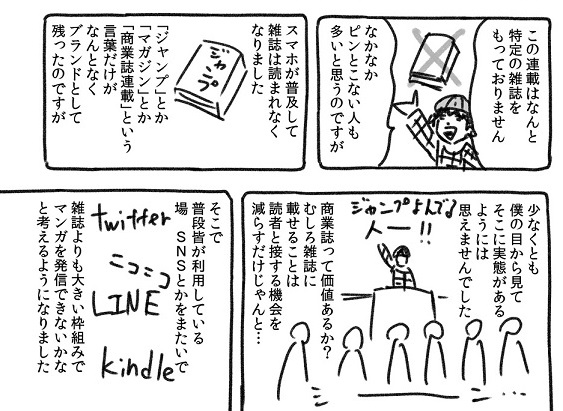 この連載はなんと
特定の雑誌を
もっておりません
なかなか
ピンとこない人も
多いと思うのですが
スマホが普及して
雑誌は読まれなく
なりました
ジャンプ
「ジャンプ」とか
「マガジン」とか
「商業誌連載」という
言葉だけが
なんとなく
ブランドとして
残ったのですが
少なくとも
僕の目から見て
そこに実態がある
ようには
思えませんでした
ジャンプよんでる
人ー!!
シ
ーン…
商業誌って価値あるか?
むしろ雑誌に
載せることは
読者と接する機会を
減らすだけじゃんと…
そこで
普段皆が利用している
場 SNSとかをまたいで
twitter
ニコニコ
LINE
kindle
雑誌よりも大きい枠組みで
マンガを発信できないかな
と考えるようになりました